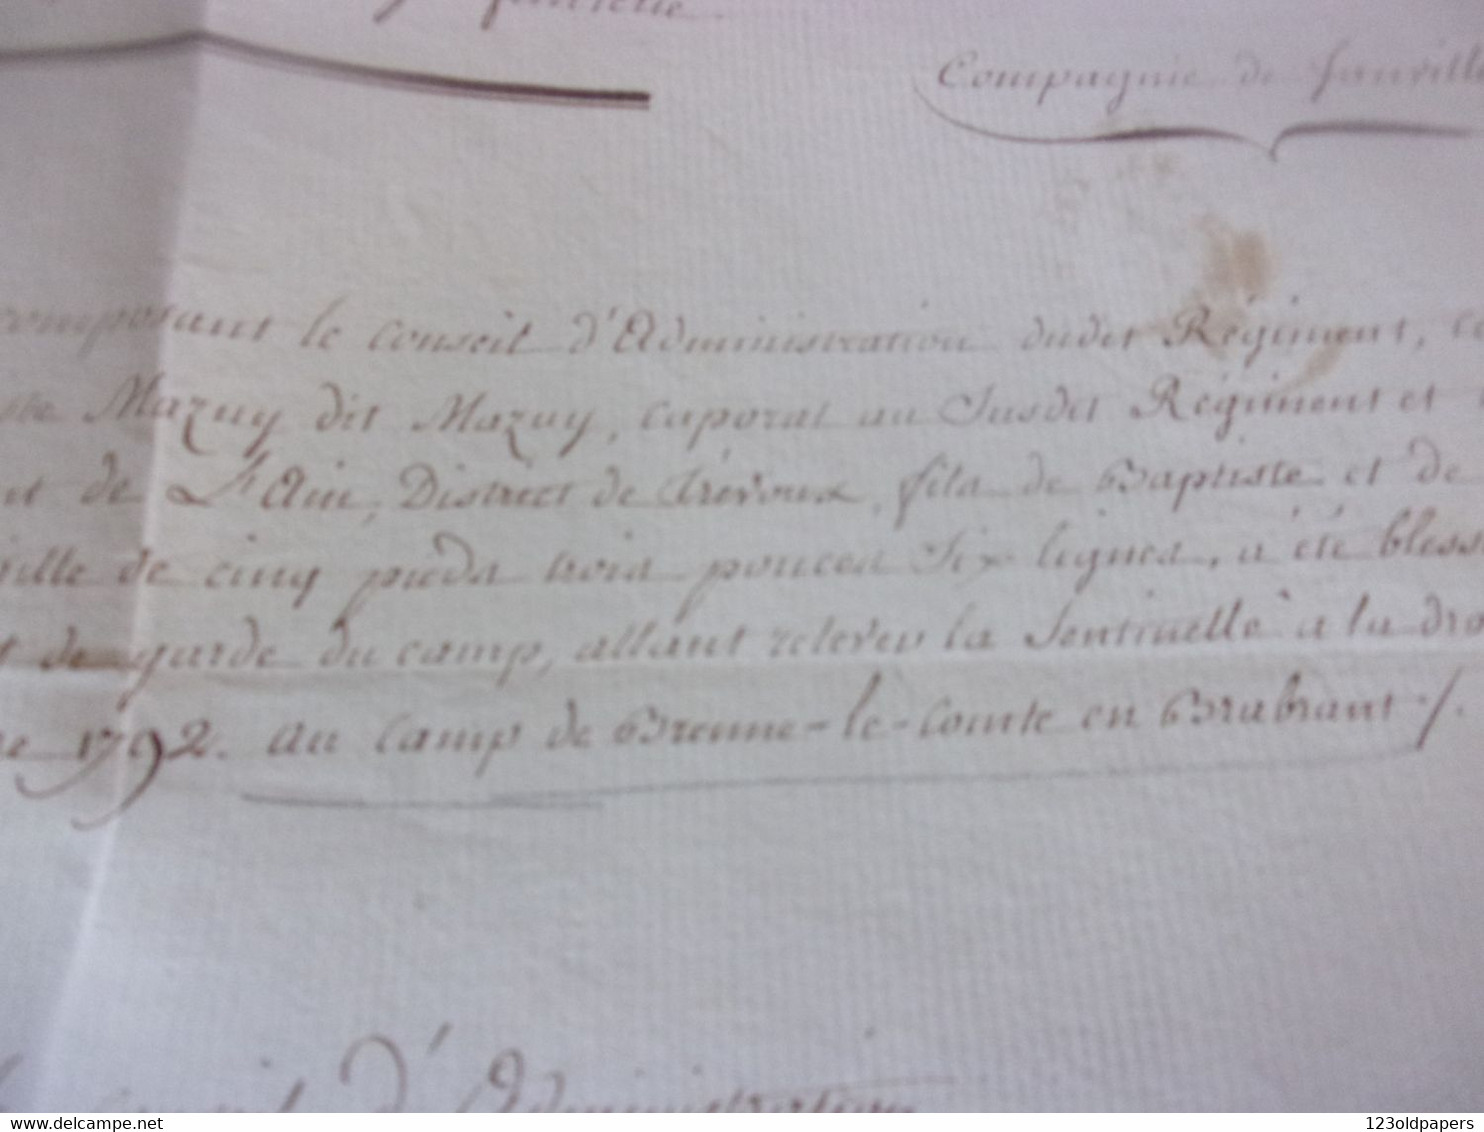 Compagnie de Janville
composant le conseil d'Administration dudit Régiment,
Mazuy dit Mazuy, caporal au Susdit Régiment et
de L'Ain, District de Trévoux, fils de Baptiste et de
ville de cinq pieds trois pouces Six lignes, a été
de garde du camp, allant relever la Sentinelle à la
1792. au camp de Brenne-le-Comte en Brabrant ./.
d'Administration
delcampe.net
123oldpapers